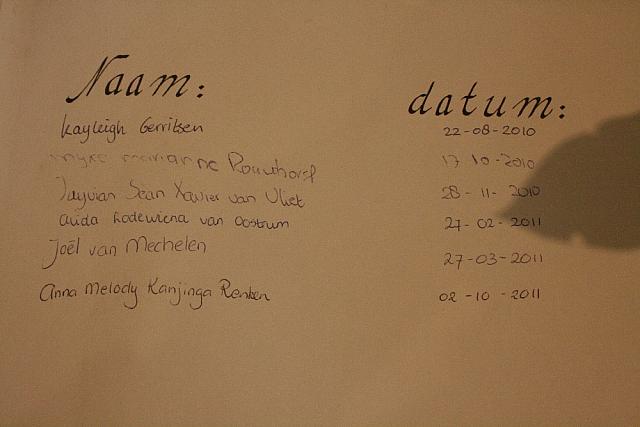 Naam: datum:
Kayleigh Gerritsen 22-08-2010
marianne Rouwhorst 17 10-2010
Jayvian Sean Xavier van Vliet 28-11-2010
Lodewiena van Oostrum 27-02-2011
Joël van Mechelen 27-03-2011
Anna Melody Kanjinga Renken 02-10-2011